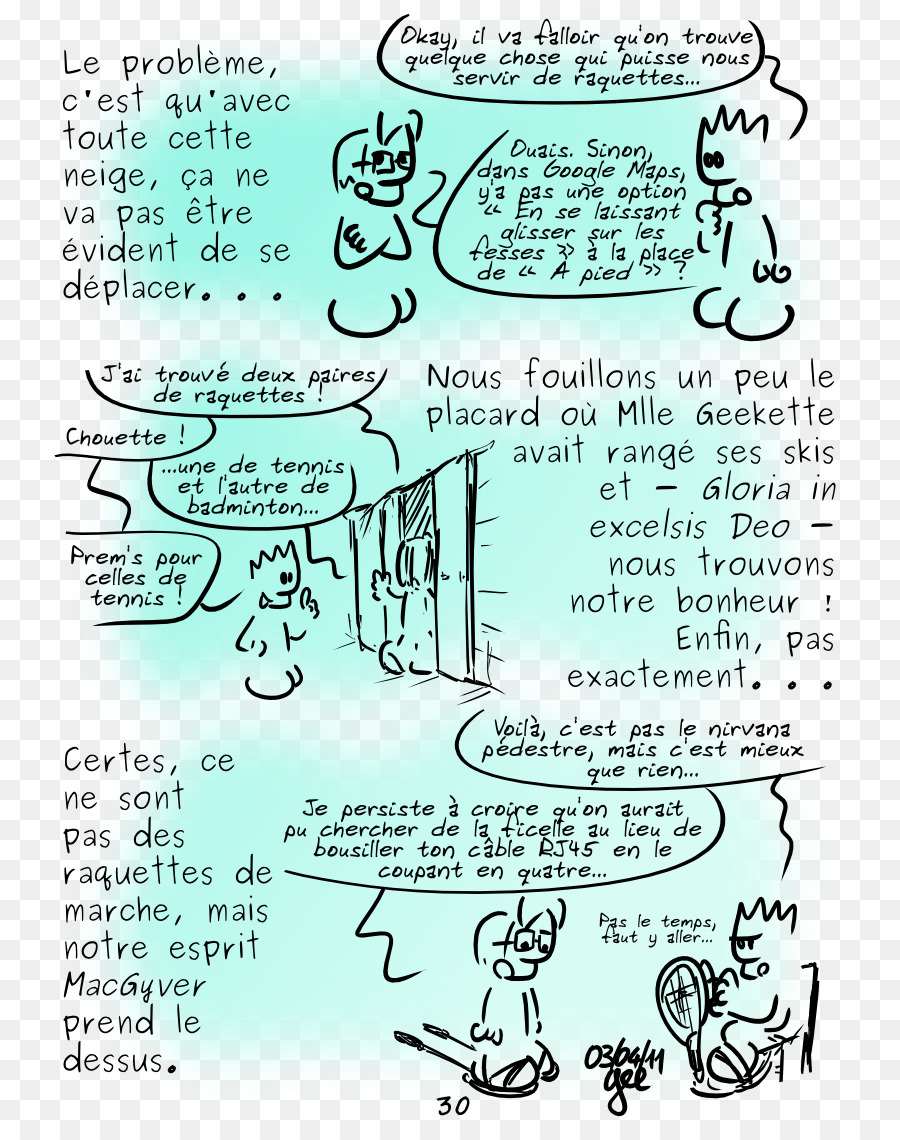 Le problème,
c'est qu'avec
toute cette
neige, ça ne
va pas être
évident de se
déplacer...
Okay, il va falloir qu'on trouve
quelque chose qui puisse nous
servir de raquettes...
Ouais. Sinon,
dans Google Maps,
y'a pas une option
« En se laissant
glisser sur les
fesses » à la place
de « A pied » ?
J'ai trouvé deux paires
de raquettes !
Chouette !
...une de tennis
et l'autre de
badminton...
Prem's pour
celles de
tennis !
Nous fouillons un peu le
placard où Mlle Geekette
avait rangé ses skis
et – Gloria in
excelsis Deo –
nous trouvons
notre bonheur !
Enfin, pas
exactement...
Certes, ce
ne sont
pas des
raquettes de
marche, mais
notre esprit
MacGyver
prend le
dessus.
Voilà, c'est pas le nirvana
pédestre, mais c'est mieux
que rien...
Je persiste à croire qu'on aurait
pu chercher de la ficelle au lieu de
bousiller ton câble RJ45 en le
coupant en quatre...
Pas le temps,
faut y aller...
03/04/11
gee
30